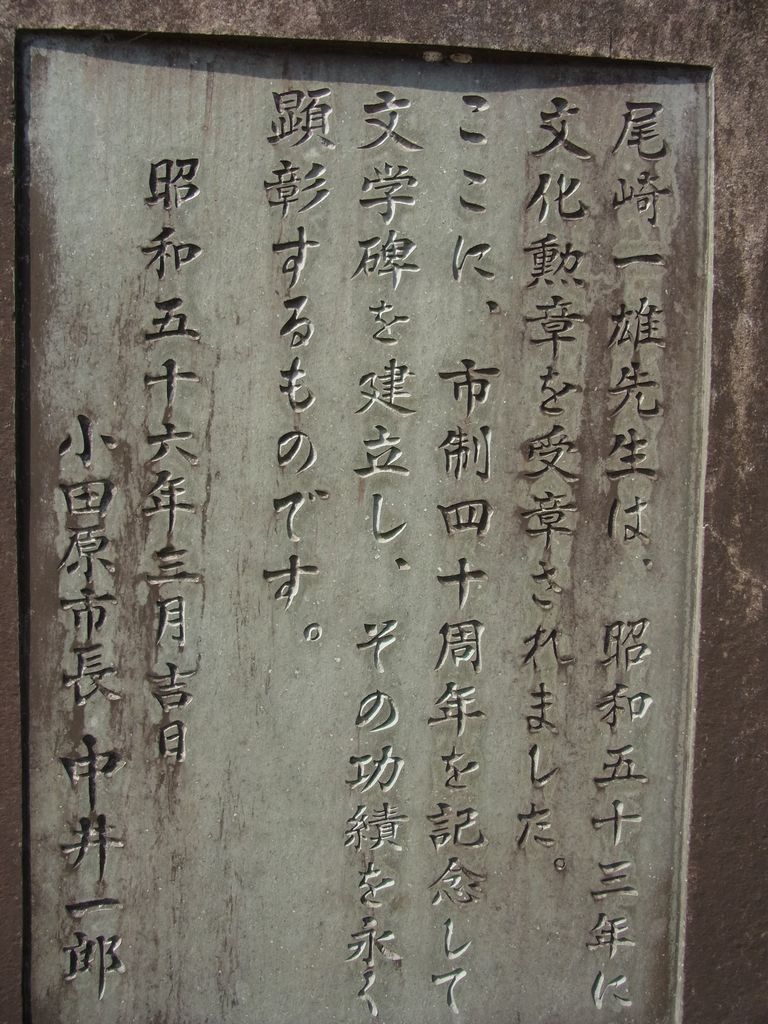 尾崎一雄先生は、昭和五十三年に
文化勲章を受章されました。
ここに、市制四十周年を記念して
文学碑を建立し、その功績を永く
顕彰するものです。
昭和五十六年三月吉日
小田原市長 中井一郎